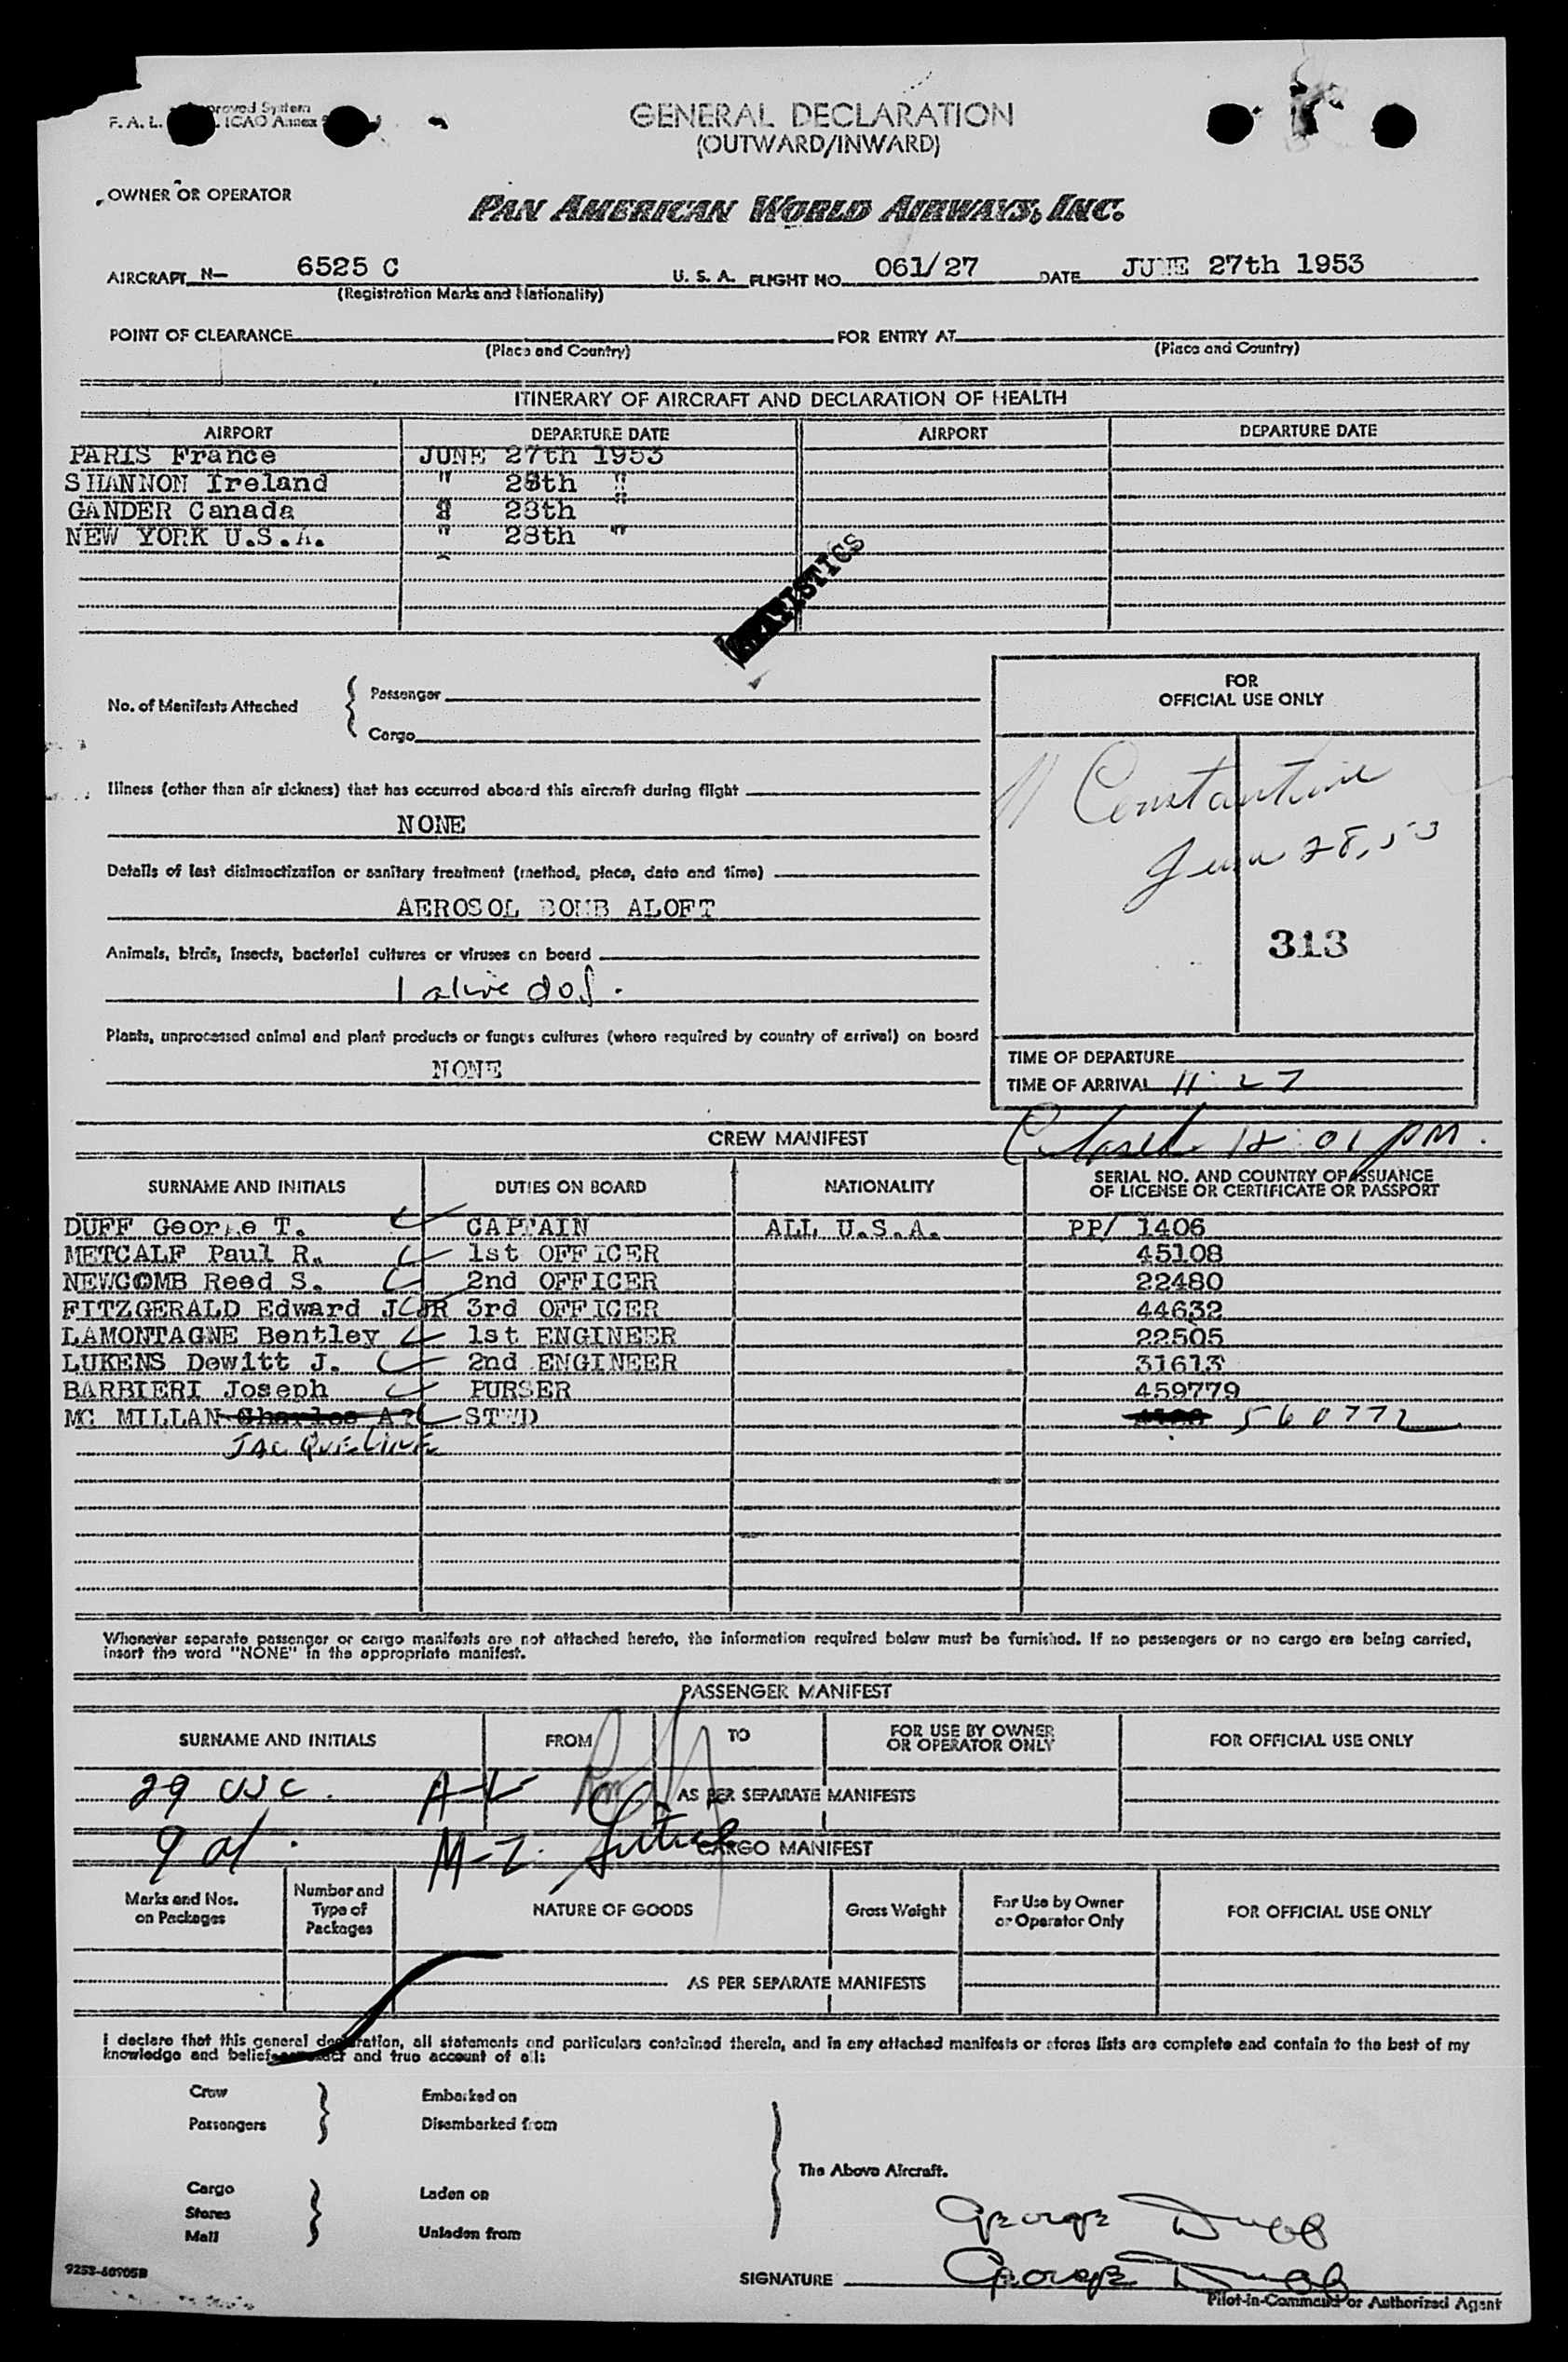 F. A. L. ICAO Annex
GENERAL DECLARATION
(OUTWARD/INWARD)
OWNER OR OPERATOR
PAN AMERICAN WORLD AIRWAYS, INC.
AIRCRAFT N— 6525 C U. S. A. FLIGHT NO. 061/27 DATE JUNE 27th 1953
(Registration Marks and Nationality)
POINT OF CLEARANCE FOR ENTRY AT
(Place and Country) (Place and Country)
ITINERARY OF AIRCRAFT AND DECLARATION OF HEALTH
AIRPORT DEPARTURE DATE AIRPORT DEPARTURE DATE
PARIS France JUNE 27th 1953
SHANNON Ireland " 28th "
GANDER Canada " 28th "
NEW YORK U.S.A. " 28th "
STATISTICS
No. of Manifests Attached { Passenger
Cargo
FOR
OFFICIAL USE ONLY
Constantine
June 28, 53
313
Illness (other than air sickness) that has occurred aboard this aircraft during flight
NONE
Details of last disinsectization or sanitary treatment (method, place, date and time)
AEROSOL BOMB ALOFT
Animals, birds, insects, bacterial cultures or viruses on board
1 alive dog.
Plants, unprocessed animal and plant products or fungus cultures (where required by country of arrival) on board
NONE
TIME OF DEPARTURE
TIME OF ARRIVAL 11:27
CREW MANIFEST
12:01 PM.
SURNAME AND INITIALS DUTIES ON BOARD NATIONALITY SERIAL NO. AND COUNTRY OF ISSUANCE
OF LICENSE OR CERTIFICATE OR PASSPORT
DUFF George T. CAPTAIN ALL U.S.A. PP/ 1406
METCALF Paul R. 1st OFFICER 45108
NEWCOMB Reed S. 2nd OFFICER 22480
FITZGERALD Edward J JR 3rd OFFICER 44632
LAMONTAGNE Bentley 1st ENGINEER 22505
LUKENS Dewitt J. 2nd ENGINEER 31613
BARBIERI Joseph PURSER 459779
MC MILLAN Charles A STWD 560772
JACQUELINE
Whenever separate passenger or cargo manifests are not attached hereto, the information required below must be furnished. If no passengers or no cargo are being carried,
insert the word "NONE" in the appropriate manifest.
PASSENGER MANIFEST
SURNAME AND INITIALS FROM TO FOR USE BY OWNER
OR OPERATOR ONLY FOR OFFICIAL USE ONLY
29 USC. A-L
AS PER SEPARATE MANIFESTS
9 al. M-Z.
CARGO MANIFEST
Marks and Nos.
on Packages Number and
Type of
Packages NATURE OF GOODS Gross Weight For Use by Owner
or Operator Only FOR OFFICIAL USE ONLY
AS PER SEPARATE MANIFESTS
I declare that this general declaration, all statements and particulars contained therein, and in any attached manifests or stores lists are complete and contain to the best of my
knowledge and belief exact and true account of all:
Crew Embarked on
Passengers Disembarked from
The Above Aircraft.
Cargo Laden on
Stores
Mail Unladen from
George Duff
SIGNATURE George Duff
Pilot-in-Command or Authorized Agent
9253-60905B